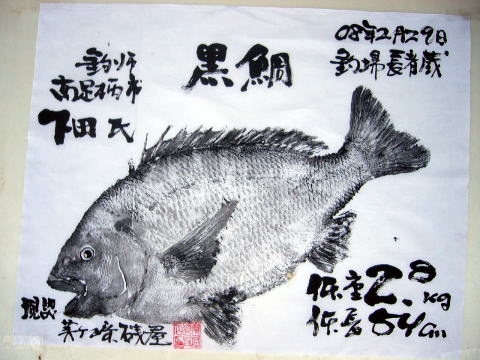 黒鯛
08年2月29日
釣場 長者蔵
釣り師
南足柄市
下田氏
体重2.8kg
体長54cm
現認
美ヶ崎磯屋